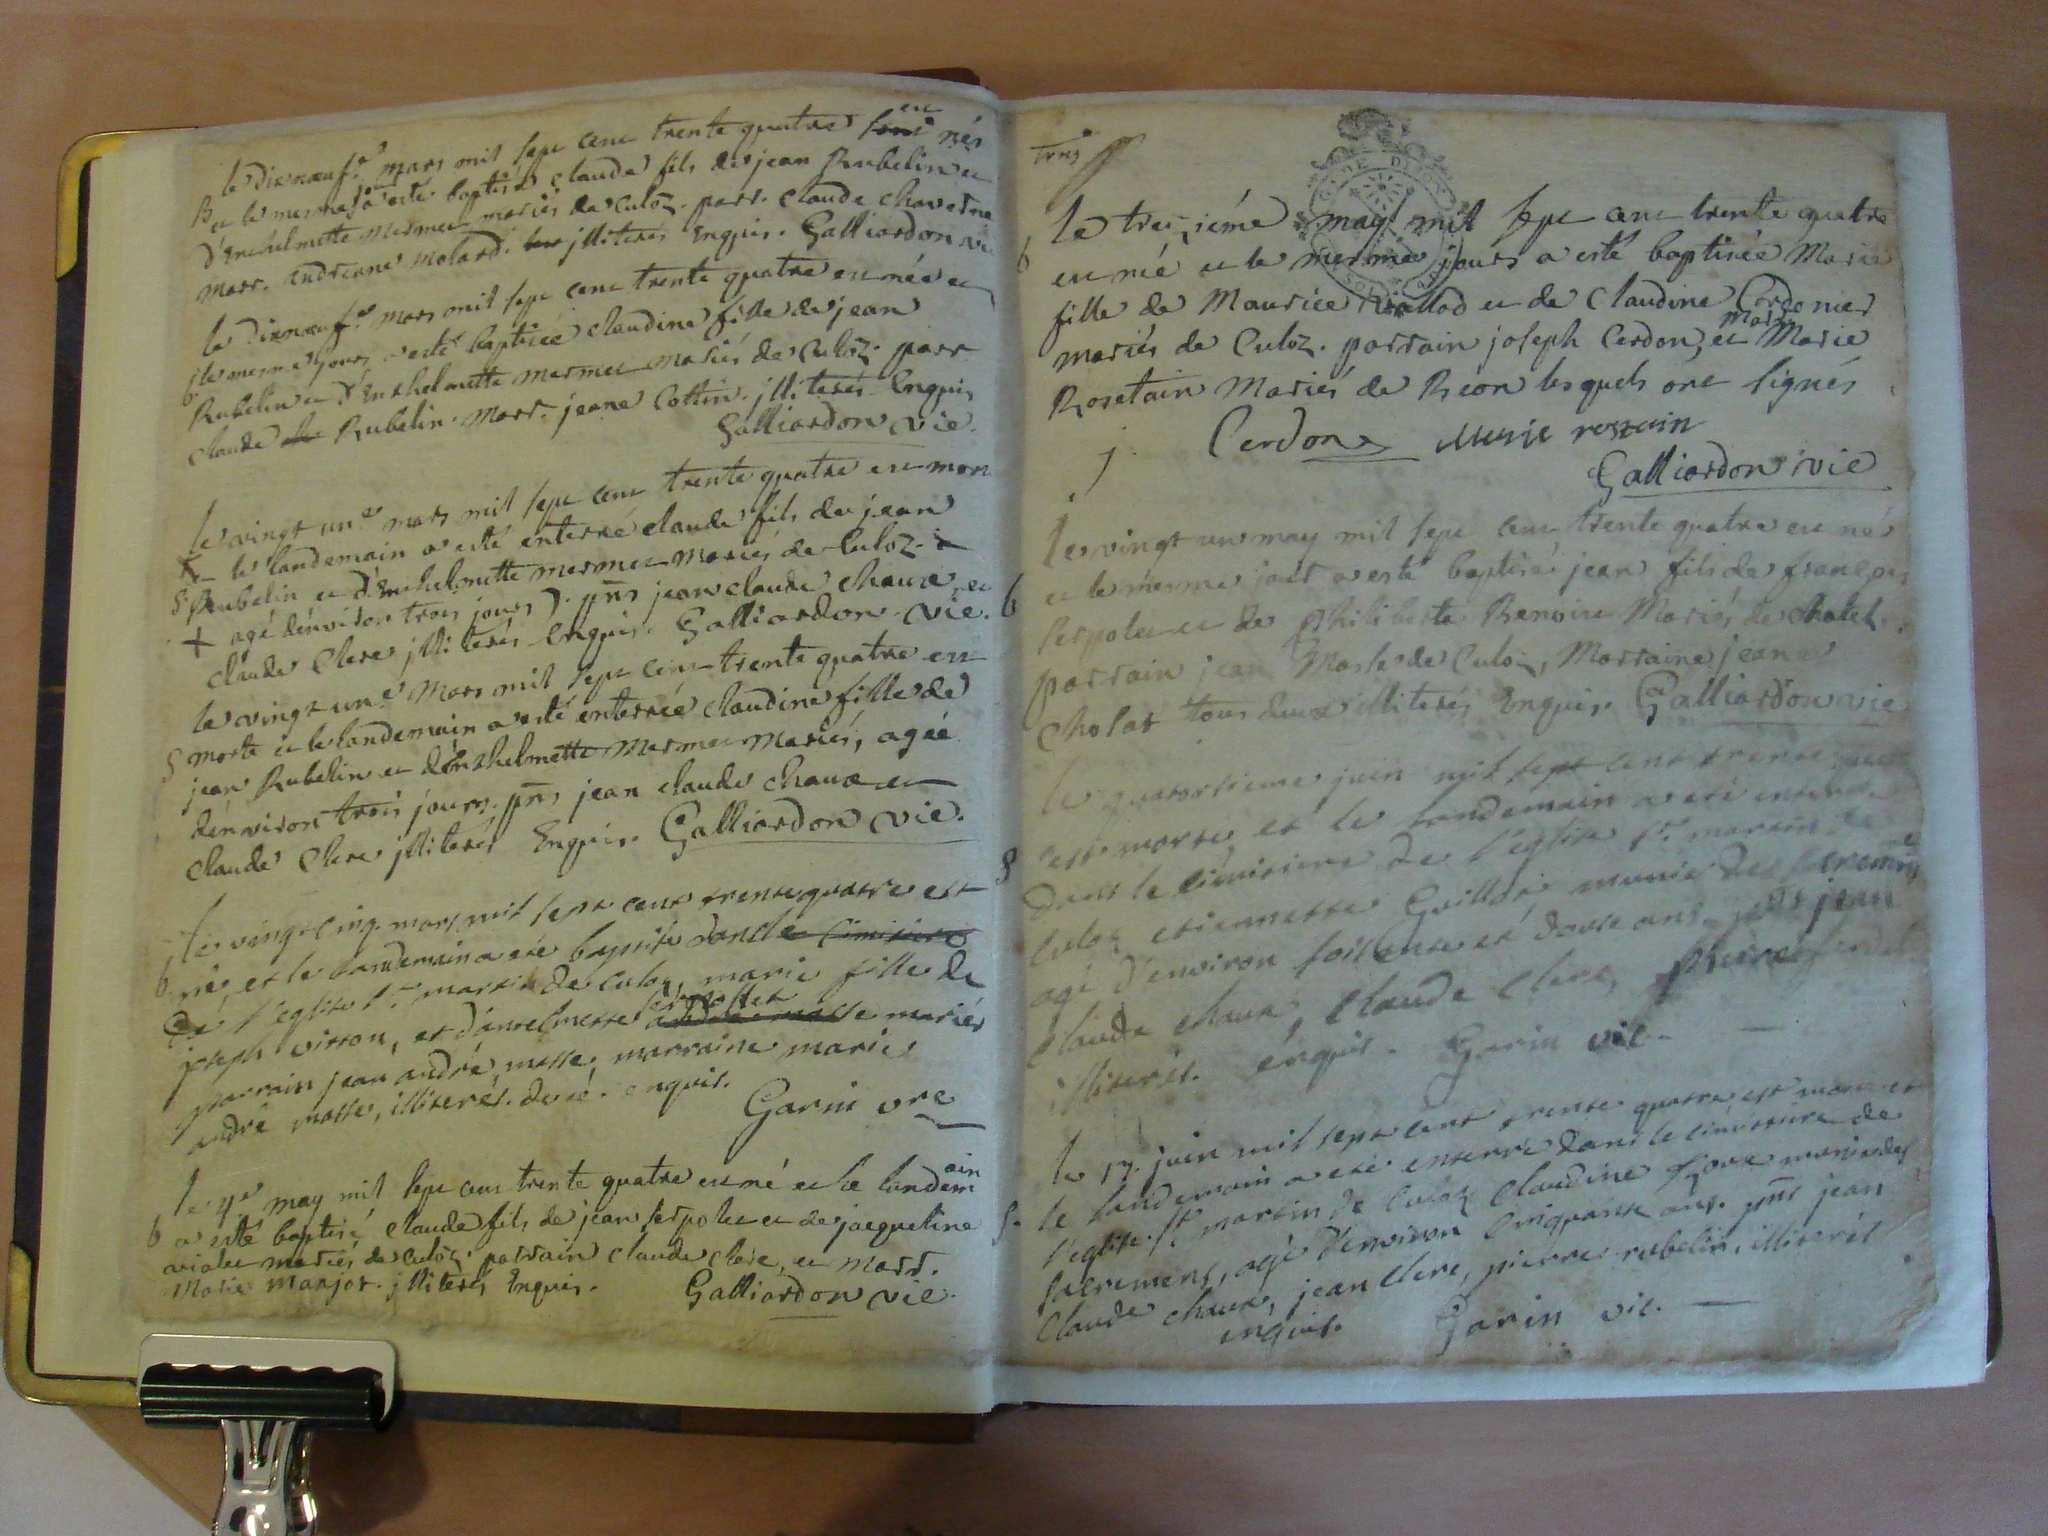 le dixneuf.e mars mil sept cent trente quatre
est nés
B et le mesme jo a esté baptisé claude fils de jean Rubelin et
d'Enthelmette mermet mariés de Culoz. parr. claude chavetne
marr. andreane Molard. illiterés Enquis. Galliardon vi
le dixneuf.e mars mil sept cent trente quatre est née et
b le mesme jours a esté baptisée claudine fille de jean
Rubelin et d'Enthelmette mermet mariés de Culoz. parr
claude Rubelin. Marr. jeane Cottin. illiterés Enquis
Galliardon vie.
le vingt un.e mars mil sept cent trente quatre est mort
et le landemain a esté enterré claude fils de jean
S. Rubelin et d'Enthelmette mermet mariés de Culoz.
+ agé dénviron trois jours). pñs jean claude chaux et
claude Clere illiterés enquis. Galliardon vie.
le vingt un.e Mars mil sept cent trente quatre est
S morte et le landemain a esté enterrée claudine fille de
jean Rubelin et d'Enthelmette mermet mariés, agée
dénviron trois jours. pñs jean claude chaux et
claude Clere illiterés Enquis. Galliardon vie.
le vingt cinq. mars mil sept cent trente quatre est
b né, et le landemain a été baptisé dans le cimitiere
de l'eglise st martin de culoz, marie fille de
joseph vitton, et d'antelmette mariés
parrain jean andré masse, marraine marie
andré masse, illiterés. enquis.
Garin vre
le 4.e may mil sept cent trente quatre est né et le landemain
b a esté baptisé claude fils de jean serpolet et de jacqueline
violet mariés de culoz. parrain claude clere, et marr.
Marie marjot. illiterés Enquis. Galliardon vie.
trois
le treizième may mil sept cent trente quatre
b est née et le mesme jours a esté baptisée Marie
fille de Maurice viallod et de Claudine Cordonier
mariés de Culoz. parrain joseph Cerdon, et marr. Marie
Rosetain Mariés de Beon lesquels ont signés
Cerdon Marie rostain
Galliardon vie
le vingt un may mil sept cent trente quatre est né
b et le mesme jour a esté baptisé jean fils de françois
Serpolet et de Philiberte Benoire Mariés de chatel.
parrain jean Masse de Culoz, Marraine jeane
Cholat tous deux illiterés Enquis. Galliardon vie
le quatortieme juin mil sept cent trente quatre
est morte, et le landemain a été enterré
S dans le cimitiere de l'eglise st. martin de
culoz etiennette Guillot, munie des sacremens
agé d'environ soissente et douse ans. pñs jean
claude chaux, Claude Clere, Pierre
illiterés. énquis. Garin vic.
le 17. juin mil sept cent trente quatre est morte et
S. le landemain a été enterré dans le cimittiere de
l'eglise st martin de culoz Claudine munie des
sacremens, agé d'environ cinquante ans. pñs jean
Claude chaux, jean clere, pierre rubelin, illiterés
enquis. Garin vic.